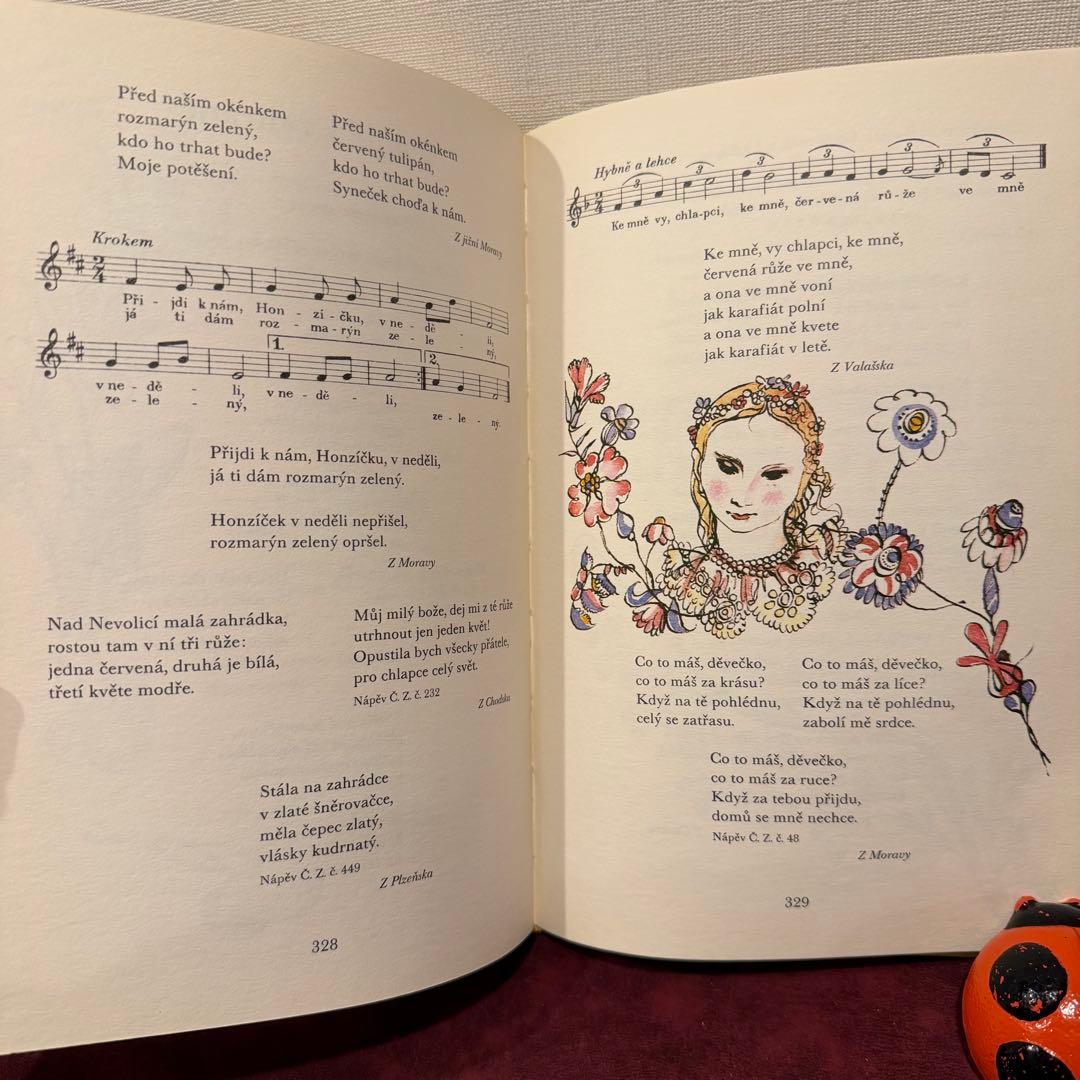 Před naším okénkem
rozmarýn zelený,
kdo ho trhat bude?
Moje potěšení.
Před naším okénkem
červený tulipán,
kdo ho trhat bude?
Syneček choďa k nám.
Z jižní Moravy
Krokem
2
4
Při - jdi k nám, Hon - zí - čku, v ne - dě - li,
já ti dám roz - ma-rýn ze - le - ný,
1.
2.
v ne - dě - li, v ne - dě - li,
ze - le - ný, ze - le - ný.
Přijdi k nám, Honzíčku, v neděli,
já ti dám rozmarýn zelený.
Honzíček v neděli nepřišel,
rozmarýn zelený opršel.
Z Moravy
Nad Nevolicí malá zahrádka,
rostou tam v ní tři růže:
jedna červená, druhá je bílá,
třetí květe modře.
Můj milý bože, dej mi z té růže
utrhnout jen jeden květ!
Opustila bych všecky přátele,
pro chlapce celý svět.
Nápěv Č. Z. č. 232
Z Chodska
Stála na zahrádce
v zlaté šněrovačce,
měla čepec zlatý,
vlásky kudrnatý.
Nápěv Č. Z. č. 449
Z Plzeňska
328
Hybně a lehce
3 3 3 3 3 3
2
4
Ke mně vy, chla-pci, ke mně, čer-ve-ná rů-že ve mně
Ke mně, vy chlapci, ke mně,
červená růže ve mně,
a ona ve mně voní
jak karafiát polní
a ona ve mně kvete
jak karafiát v letě.
Z Valašska
Co to máš, děvečko,
co to máš za krásu?
Když na tě pohlédnu,
celý se zatřasu.
Co to máš, děvečko,
co to máš za líce?
Když na tě pohlédnu,
zabolí mě srdce.
Co to máš, děvečko,
co to máš za ruce?
Když za tebou přijdu,
domů se mně nechce.
Nápěv Č. Z. č. 48
Z Moravy
329